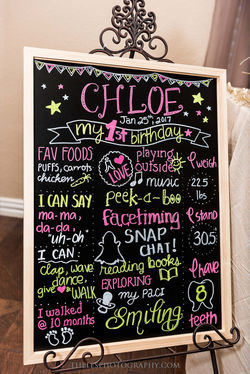 CHLOE
Jan 25th 2017
my 1st birthday
FAV FOODS
PUFFS, carrots
chicken
I CAN SAY
ma-ma,
da-da,
uh-oh
I CAN
clap, wave
dance,
give WALK
I walked
@ 10 months
I LOVE
playing
outside
music
peek-a-boo
facetiming
SNAP
CHAT!
reading books
EXPLORING
my paci
Smiling
I weigh
22.5
lbs
I stand
30.5
I have
8
teeth
THELTSPHOTOGRAPHY.COM